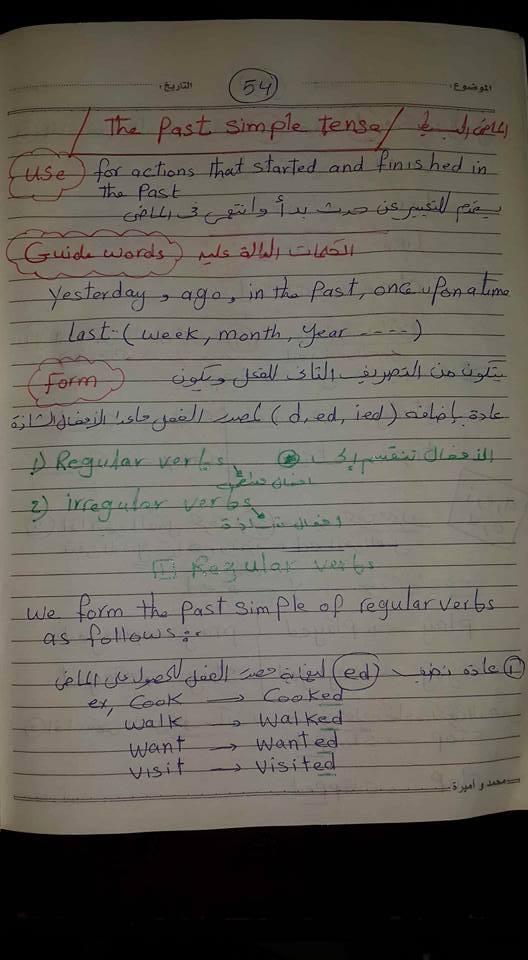 الموضوع: التاريخ:
54
The Past simple tense الماضى البسيط
use for actions that started and finished in
the Past
يستخدم للتعبير عن حدث بدأ وانتهى فى الماضى
Guide words الكلمات الدالة عليه
yesterday, ago, in the Past, once upon a time
last (week, month, year ----)
Form يتكون من التصريف الثانى للفعل ويكون
عادة بإضافة (d, ed, ied) لمصدر الفعل ماعدا الأفعال الشاذة
1) Regular verbs الأفعال تنقسم إلى
افعال منتظمة
2) irregular verbs
افعال شاذة
[1] Regular verbs
we form the past simple of regular verbs
as follows:-
① عادة نضيف (ed) لنهاية مصدر الفعل للحصول على الماضى
ex, Cook → Cooked
Walk → Walked
Want → Wanted
Visit → Visited
محمد و أميرة